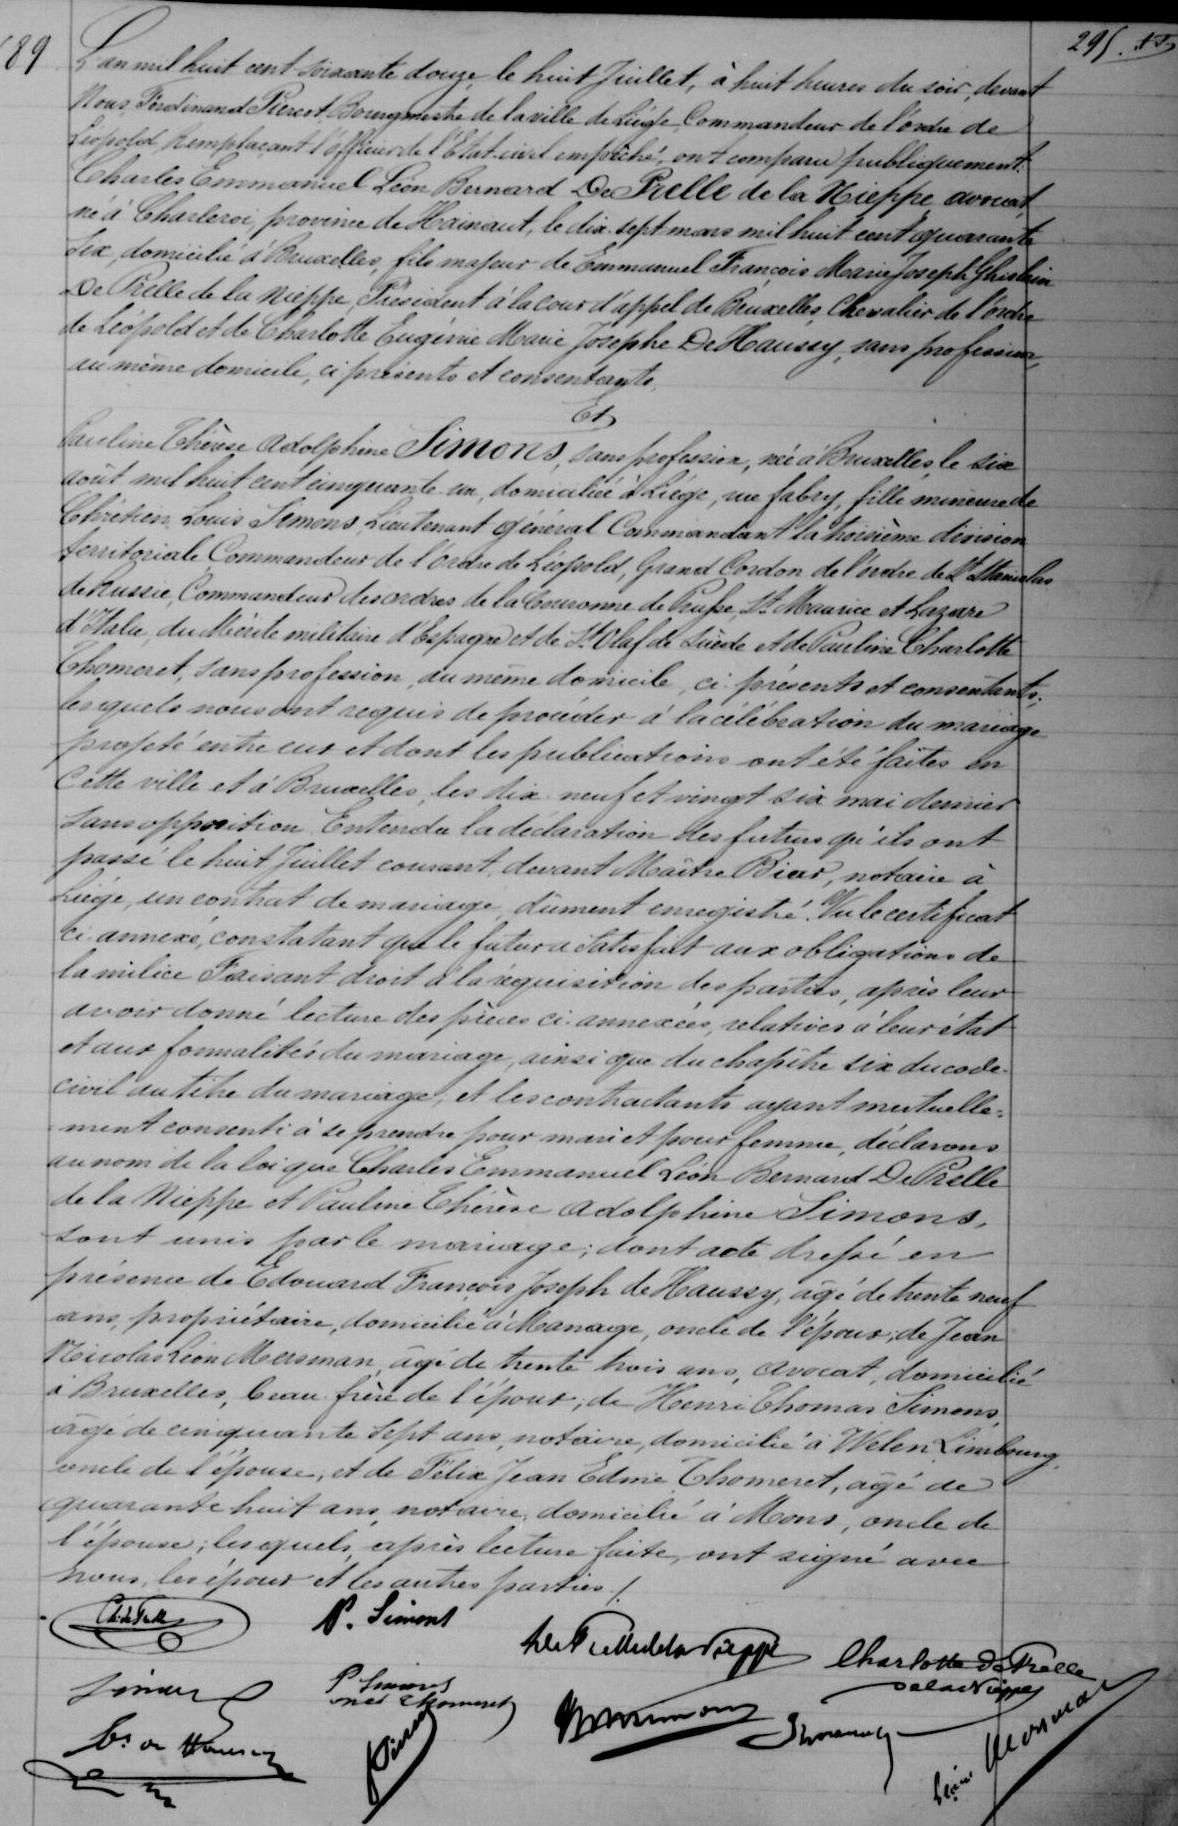 689
295.
L'an mil huit cent soixante douze, le huit Juillet, à huit heures du soir, devant
Nous, Ferdinand Piercot Bourgmestre de la ville de Liége, Commandeur de l'ordre de
Léopold, Remplaçant l'officier de l'Etat-civil empêché, ont comparu publiquement:
Charles Emmanuel Léon Bernard De Prelle de la Nieppe, avocat,
né à Charleroi, province de Hainaut, le dix-sept mars mil huit cent quarante
six, domicilié à Bruxelles, fils majeur de Emmanuel François Marie Joseph Ghislain
De Prelle de la Nieppe, Président à la cour d'appel de Bruxelles, Chevalier de l'ordre
de Léopold et de Charlotte Eugénie Marie Josephe De Haussy, sans profession,
au même domicile, ci présents et consentants,
Et
Pauline Thérèse Adolphine Simons, sans profession, née à Bruxelles, le six
août mil huit cent cinquante un, domiciliée à Liége, rue fabry, fille mineure de
Chrétien Louis Simons, Lieutenant général Commandant la troisième division
territoriale, Commandeur de l'ordre de Léopold, Grand Cordon de l'ordre de St Stanislas
de Russie, Commandeur des ordres de la Couronne de Prusse, St Maurice et Lazare
d'Italie, du Mérite militaire d'Espagne et de St Olaf de Suède et de Pauline Charlotte
Thomeret, sans profession, au même domicile, ci présents et consentants;
lesquels nous ont requis de procéder à la célébration du mariage
projeté entre eux et dont les publications ont été faites en
Cette ville et à Bruxelles, les dix-neuf et vingt six mai dernier
sans opposition. Entendu la déclaration des futurs qu'ils ont
passé le huit Juillet courant, devant Maître Biar, notaire à
Liége, un contrat de mariage, dûment enregistré. Vu le certificat
ci annexé, constatant que le futur a satisfait aux obligations de
la milice Faisant droit à la réquisition des parties, après leur
avoir donné lecture des pièces ci-annexées, relatives à leur état
et aux formalités du mariage, ainsi que du chapitre six du code
civil au titre du mariage, et les contractants ayant mutuelle-
ment consenti à se prendre pour mari et pour femme, déclarons
au nom de la loi que Charles Emmanuel Léon Bernard De Prelle
de la Nieppe et Pauline Thérèse Adolphine Simons,
sont unis par le mariage; dont acte dressé en
présence de Edouard François Joseph de Haussy, âgé de trente neuf
ans, propriétaire, domicilié à Manage, oncle de l'époux; de Jean
Nicolas Léon Mersman, âgé de trente trois ans, avocat, domicilié
à Bruxelles, beau frère de l'époux; de Henri Thomas Simons,
âgé de cinquante sept ans, notaire, domicilié à Welen, Limbourg,
oncle de l'épouse; et de Félix Jean Edmé Thomeret, âgé de
quarante huit ans, notaire, domicilié à Mons, oncle de
l'épouse; lesquels, après lecture faite, ont signé avec
nous, les époux et les autres parties./.
P. Simons
De Prelle de la Nieppe
Charlotte De Prelle
de la Nieppe
Simons
P Simons
née Thomeret
Thomeret
Léon Mersman
de Haussy
Piercot